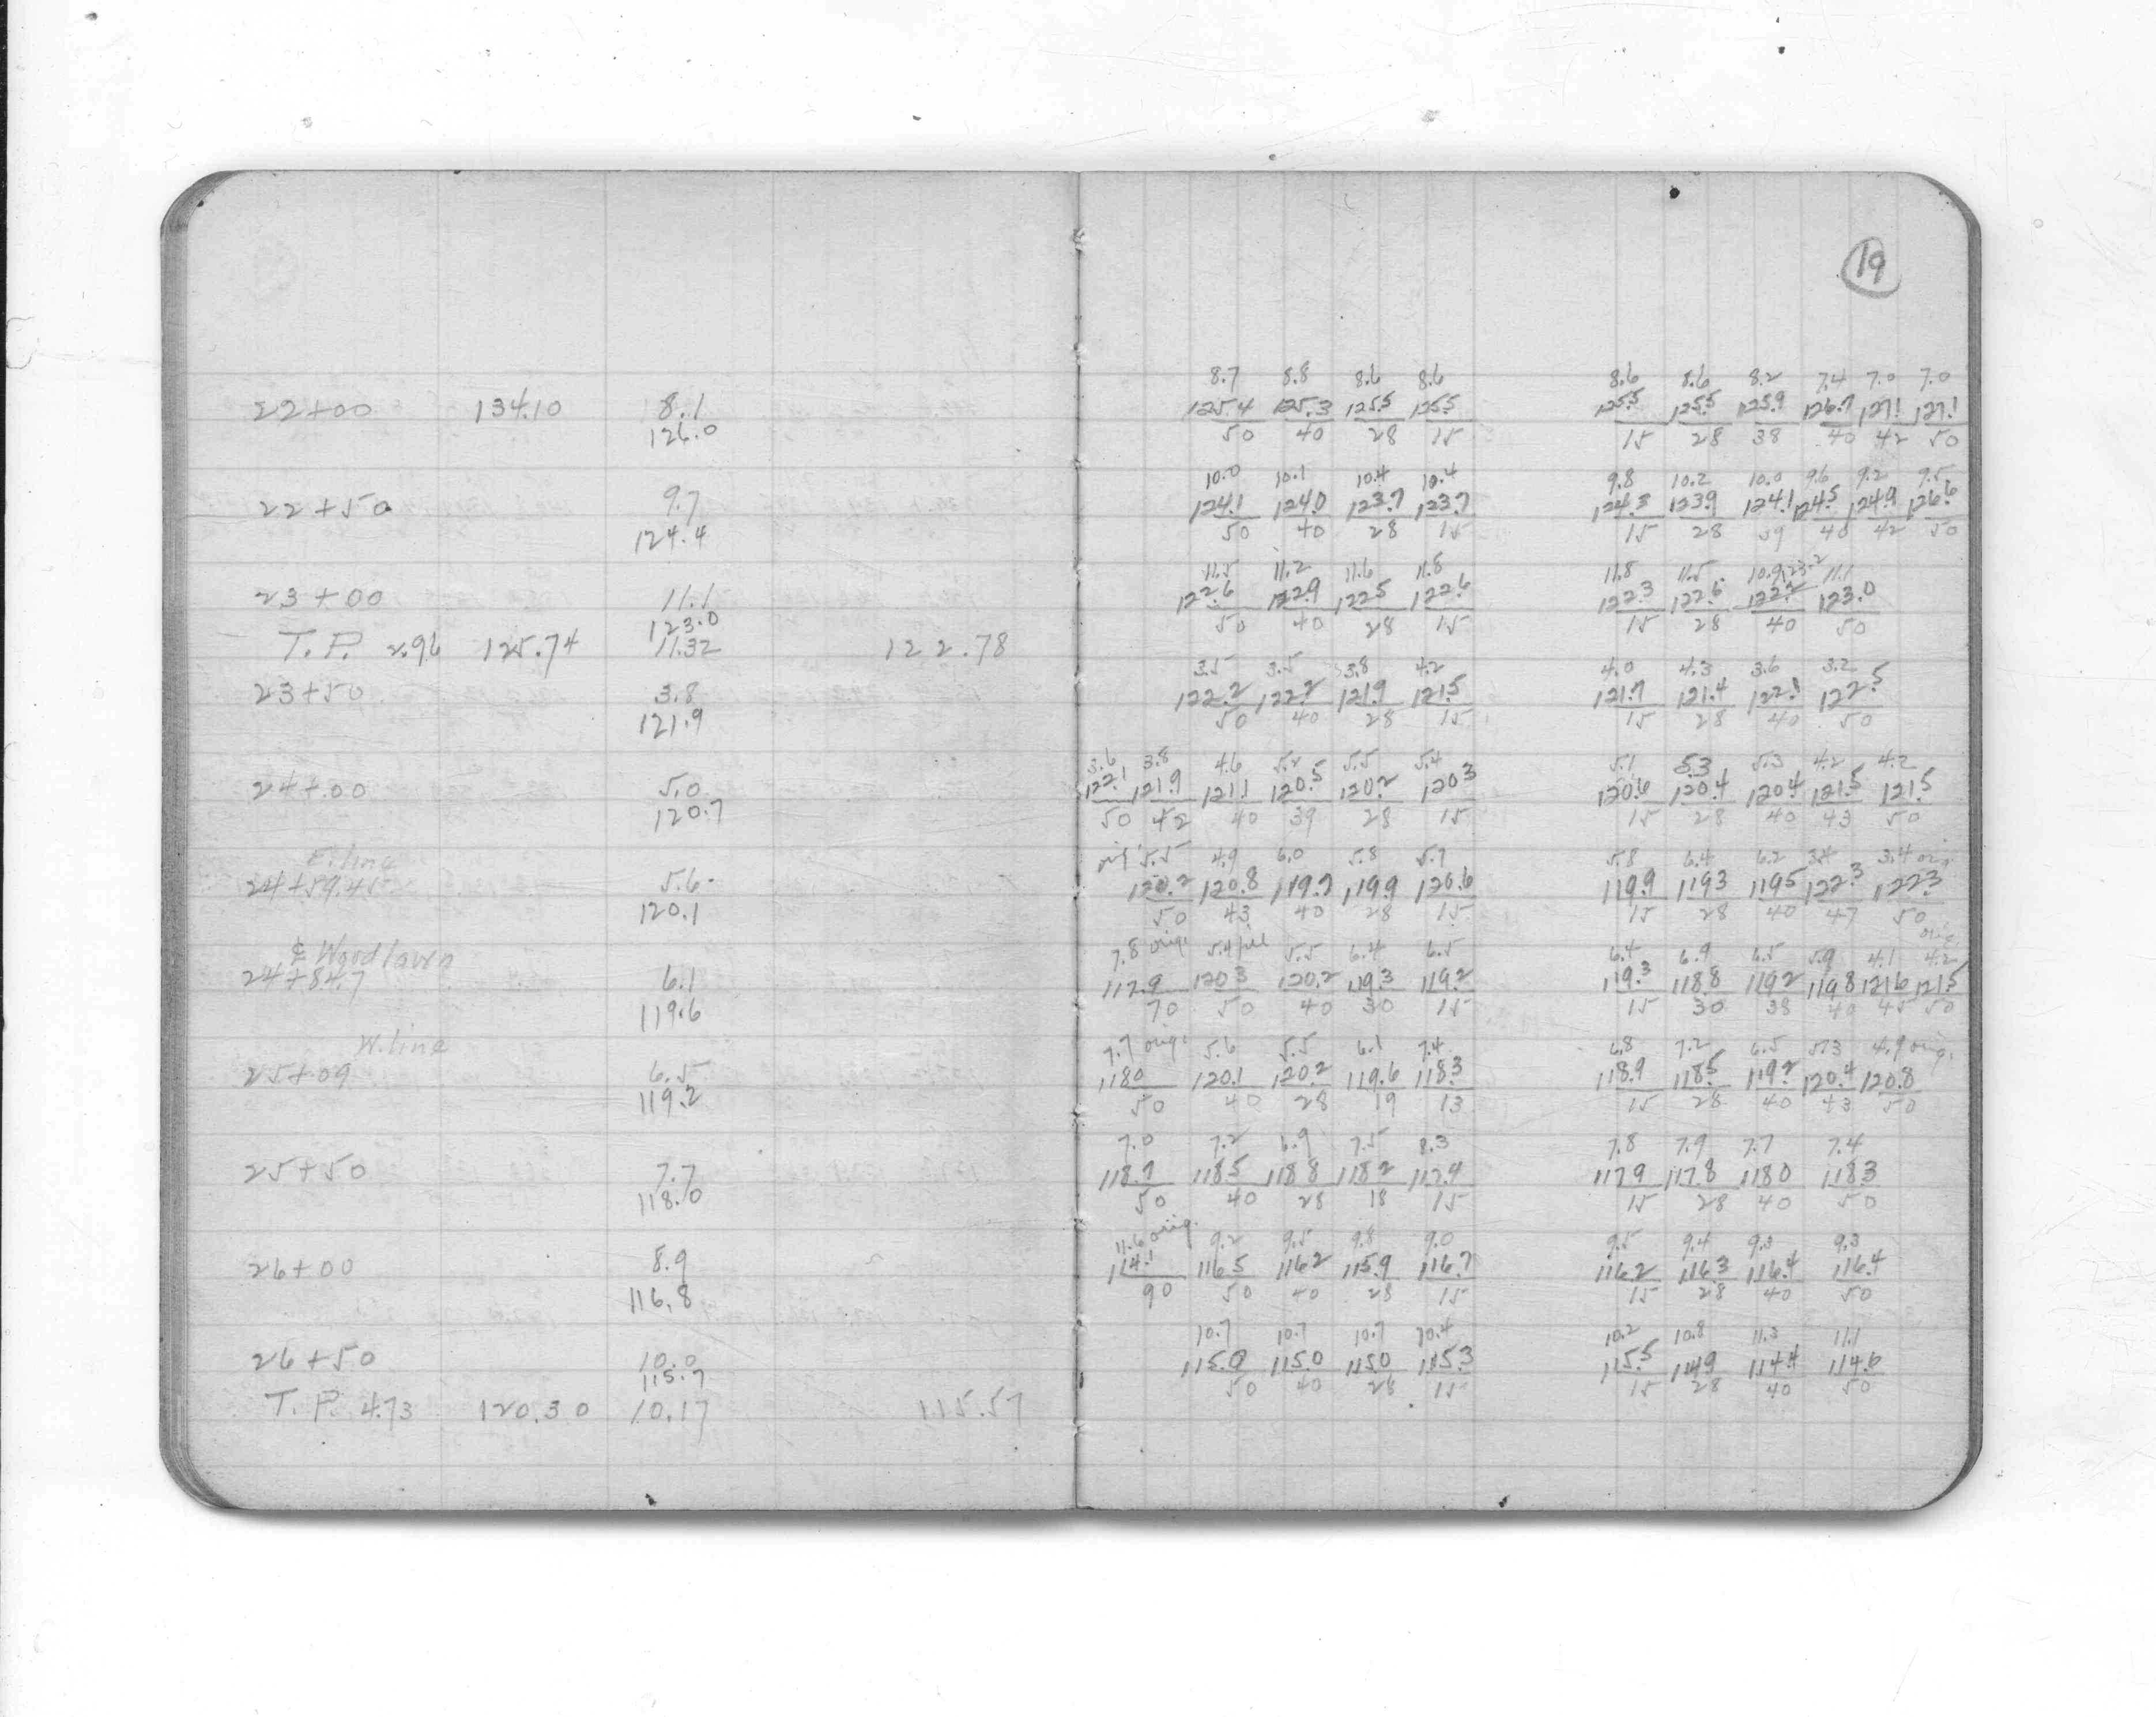 19
8.7 8.8 8.6 8.6 8.6 8.6 8.2 7.4 7.0 7.0
22+00 134.10 8.1 125.4 125.3 125.5 125.5 125.5 125.5 125.9 126.7 127.1 127.1
126.0 50 40 28 15 15 28 38 40 42 50
10.0 10.1 10.4 10.4 9.8 10.2 10.0 9.6 9.2 9.5
22+50 9.7 124.1 124.0 123.7 123.7 124.3 123.9 124.1 124.5 124.9 126.6
124.4 50 40 28 15 15 28 39 40 42 50
11.5 11.2 11.6 11.8 11.8 11.5 10.9 123.2 11.1
23+00 11.1 122.6 122.9 122.5 122.6 122.3 122.6 122.2 123.0
123.0 50 40 28 15 15 28 40 50
T.P. 2.96 125.74 11.32 122.78
3.5 3.5 3.8 4.2 4.0 4.3 3.6 3.2
23+50 3.8 122.2 122.2 121.9 121.5 121.7 121.4 122.1 122.5
121.9 50 40 28 15 15 28 40 50
3.6 3.8 4.6 5.2 5.5 5.4 5.1 5.3 5.3 4.2 4.2
24+00 5.0 122.1 121.9 121.1 120.5 120.2 120.3 120.6 120.4 120.4 121.5 121.5
120.7 50 42 40 39 28 15 15 28 40 43 50
E. line orig. 5.5 4.9 6.0 5.8 5.7 5.8 6.4 6.2 3.4 3.4 orig.
24+59.45 5.6 120.2 120.8 119.7 119.9 120.6 119.9 119.3 119.5 122.3 122.3
120.1 50 43 40 28 15 15 28 40 47 50
℄ Woodlawn 7.8 orig. 5.4 fill 5.5 6.4 6.5 6.4 6.9 6.5 5.9 4.1 4.2 orig.
24+84.7 6.1 117.9 120.3 120.2 119.3 119.2 119.3 118.8 119.2 119.8 121.6 121.5
119.6 70 50 40 30 15 15 30 38 40 45 50
W. line 7.7 orig. 5.6 5.5 6.1 7.4 6.8 7.2 6.5 5.3 4.9 orig.
25+09 6.5 118.0 120.1 120.2 119.6 118.3 118.9 118.5 119.2 120.4 120.8
119.2 50 40 28 19 13 15 28 40 43 50
7.0 7.2 6.9 7.5 8.3 7.8 7.9 7.7 7.4
25+50 7.7 118.7 118.5 118.8 118.2 117.4 117.9 117.8 118.0 118.3
118.0 50 40 28 18 15 15 28 40 50
11.6 orig. 9.2 9.5 9.8 9.0 9.5 9.4 9.3 9.3
26+00 8.9 114.1 116.5 116.2 115.9 116.7 116.2 116.3 116.4 116.4
116.8 90 50 40 28 15 15 28 40 50
10.7 10.7 10.7 10.4 10.2 10.8 11.3 11.1
26+50 10.0 115.0 115.0 115.0 115.3 115.5 114.9 114.4 114.6
115.7 50 40 28 15 15 28 40 50
T.P. 4.73 120.30 10.17 115.57